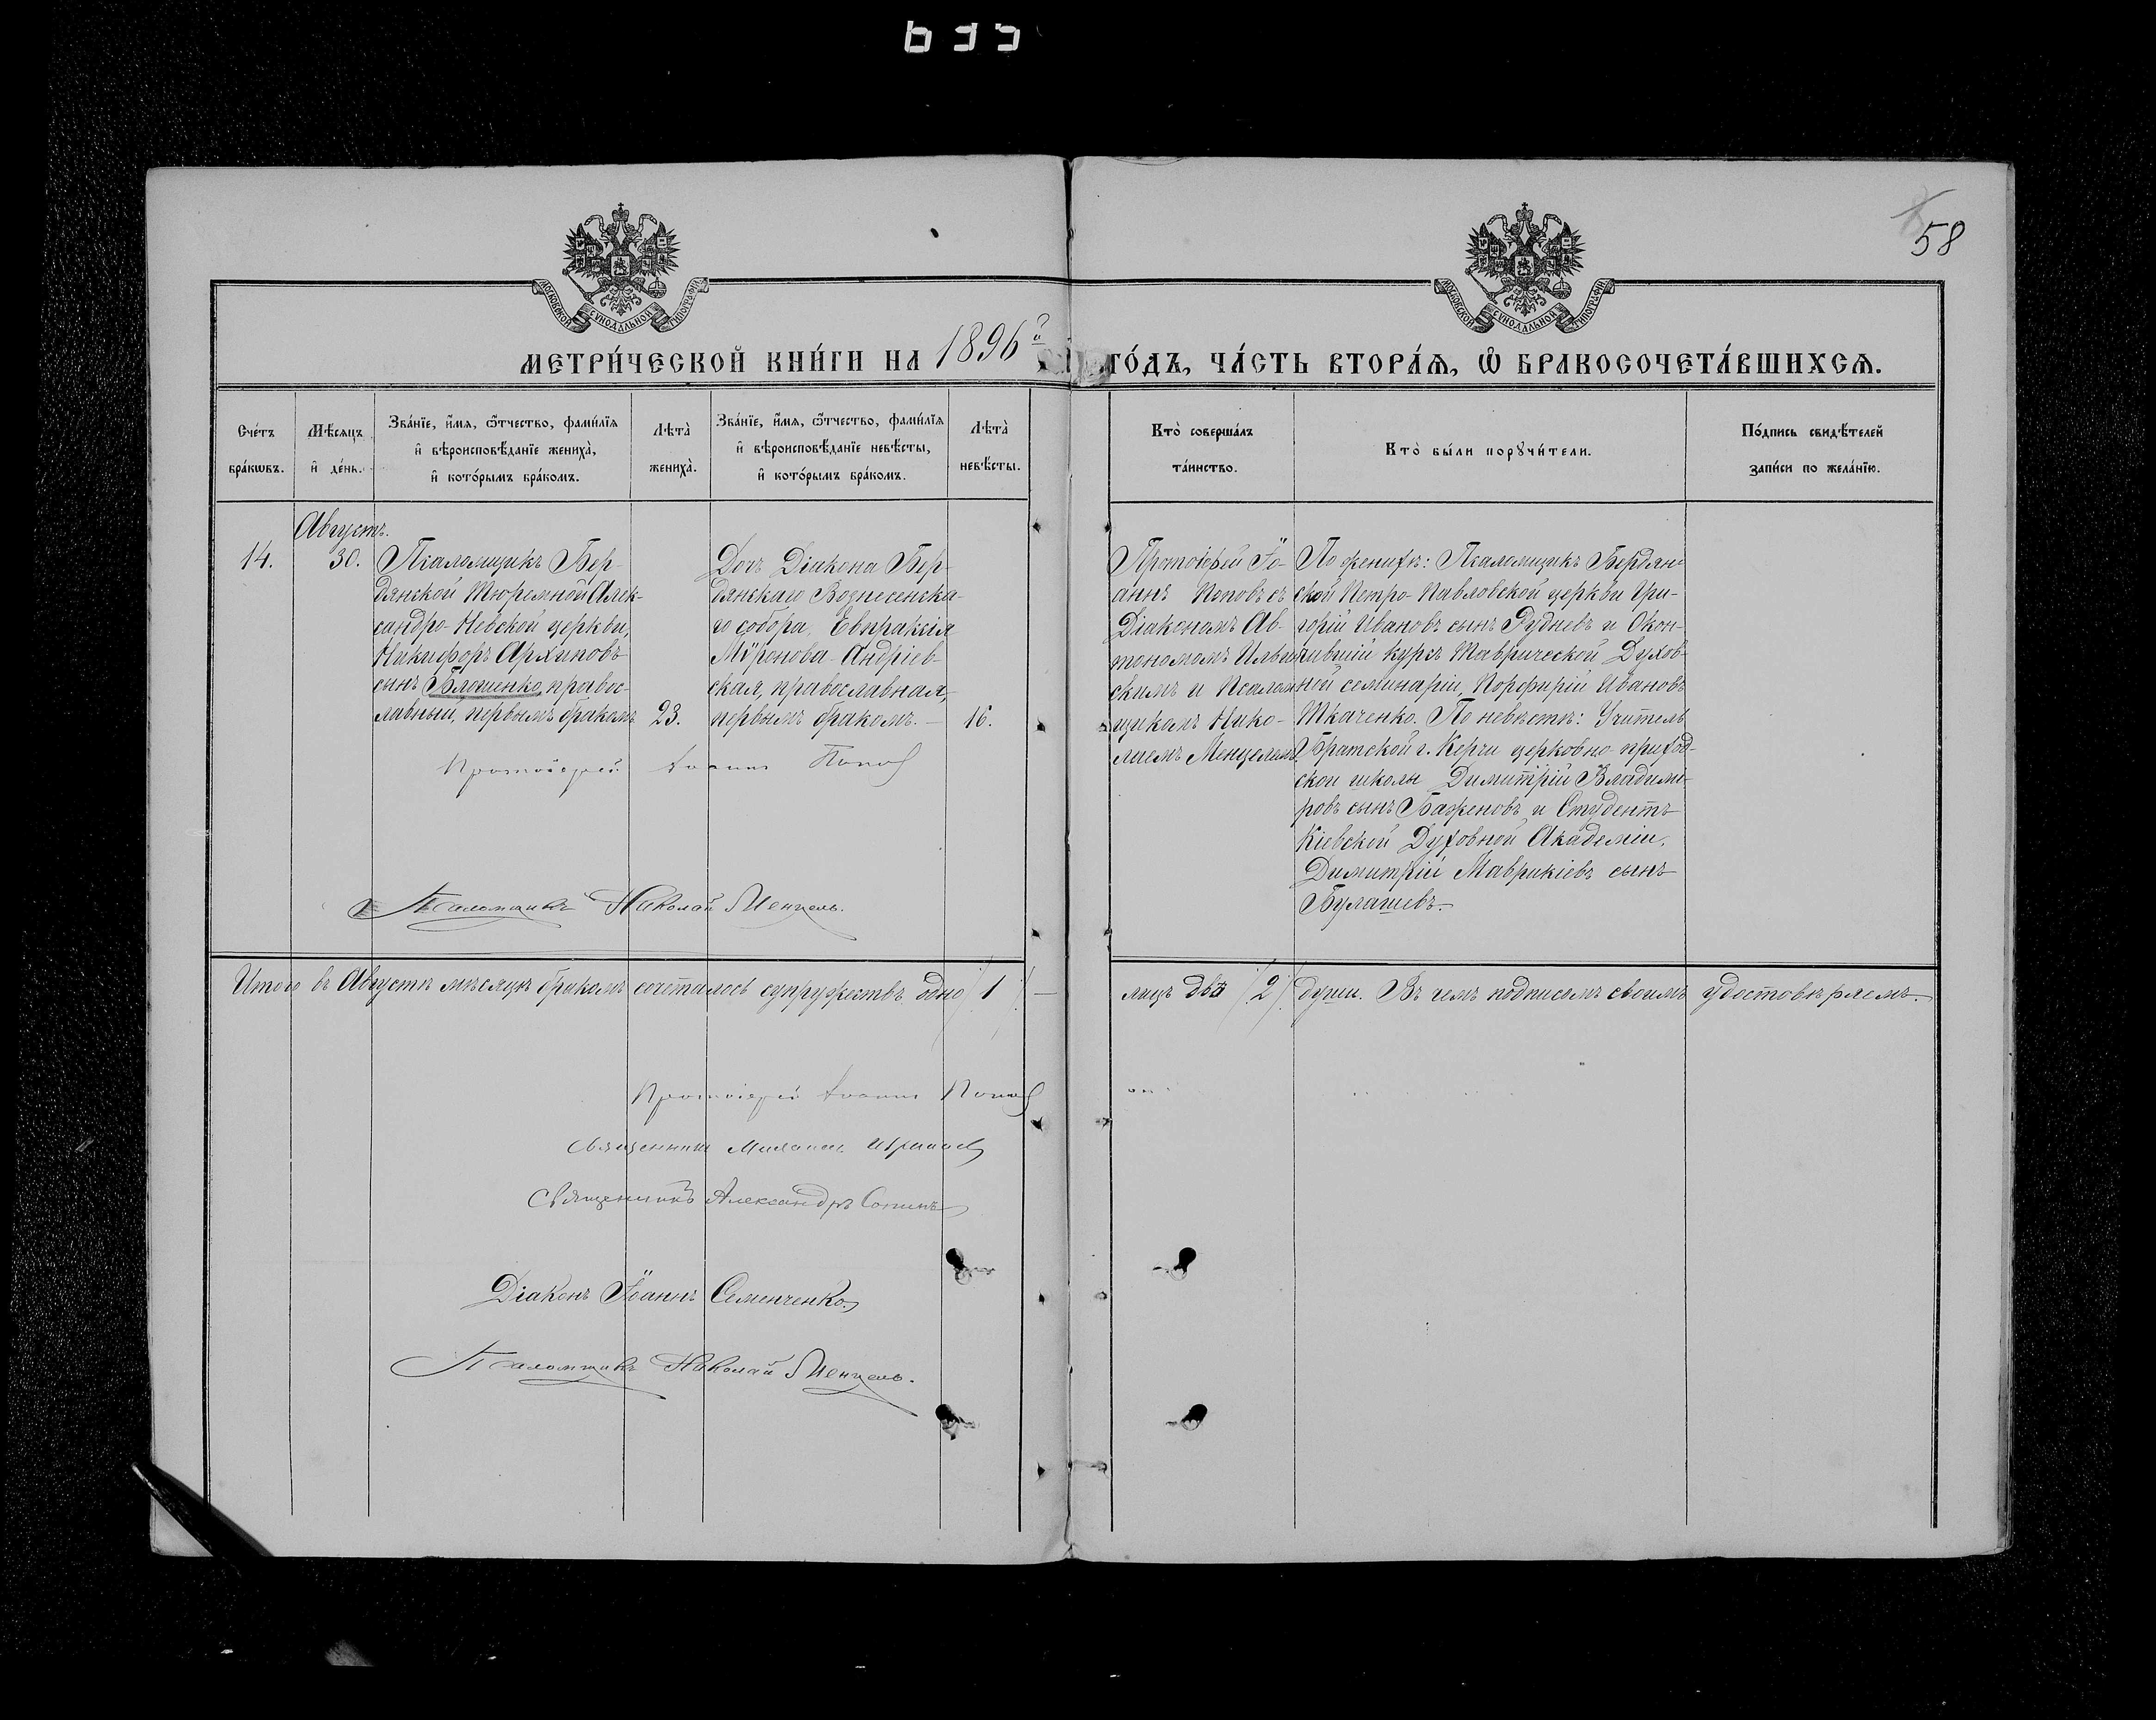 58
МОСКОВСКОЙ СѴНОДАЛЬНОЙ ТИПОГРАФІИ
МОСКОВСКОЙ СѴНОДАЛЬНОЙ ТИПОГРАФІИ
МЕТРИ́ЧЕСКОЙ КНИ́ГИ НА 1896й ГО́ДЪ, ЧА́СТЬ ВТОРА́Ѧ, Ѽ БРАКОСОЧЕТА́ВШИХСѦ.
Сче́тъ
бра́кѡвъ.
Мѣ́сѧцъ
и҆ де́нь.
Зва́нїе, и҆́мѧ, ѻ҆́тчество, фами́лїѧ
и҆ вѣроисповѣ́данїе жениха̀,
и҆ кото́рымъ бра́комъ.
Лѣта̀
жениха̀.
Зва́нїе, и҆́мѧ, ѻ҆́тчество, фами́лїѧ
и҆ вѣроисповѣ́данїе невѣ́сты,
и҆ кото́рымъ бра́комъ.
Лѣта̀
невѣ́сты.
Кто̀ соверша́лъ
та́инство.
Кто̀ бы́ли порꙋчи́тели.
По́дпись свидѣ́телей
за́писи по жела́нїю.
Августъ.
14.
30.
Псаломщикъ Бер-
дянской Тюремной Алек-
сандро-Невской церкви,
Никифоръ Архиповъ
сынъ Блошенко, правос-
лавный, первымъ бракомъ
23.
Дочь Діакона Бер-
дянскаго Вознесенска-
го собора, Евпраксія
Мѵронова Андріев-
ская, православная,
первымъ бракомъ.—
16.
Протоіерей Іо-
аннъ Поповъ съ
Діакономъ Ав-
тономомъ Ильин-
скимъ и Псалом-
щикомъ Нико-
лаемъ Менцелемъ.
По женихѣ: Псаломщикъ Бердян-
ской Петро-Павловской церкви Гри-
горій Ивановъ сынъ Рудневъ и Окон-
чившій курсъ Таврической Духов-
ной семинаріи, Порфирій Ивановъ
Ткаченко. По невѣстѣ: Учитель
Братской г. Керчи церковно-приход-
ской школы Димитрій Владимі-
ровъ сынъ Баженовъ и Студентъ
Кіевской Духовной Академіи,
Димитрій Маврикіевъ сынъ
Булашевъ.
Протоіерей Іоаннъ Попов
Псаломщикъ Николай Менцель.
Итого въ Августѣ мѣсяцѣ бракомъ сочеталось супружествъ одно /1/ — лицъ двѣ /2/ души. Въ чемъ подписомъ своимъ удостовѣряемъ.
Протоіерей Іоаннъ Попов
Священникъ
Священникъ Александръ Сопинъ
Діаконъ Іоаннъ Семенченко.
Псаломщикъ Николай Менцель.